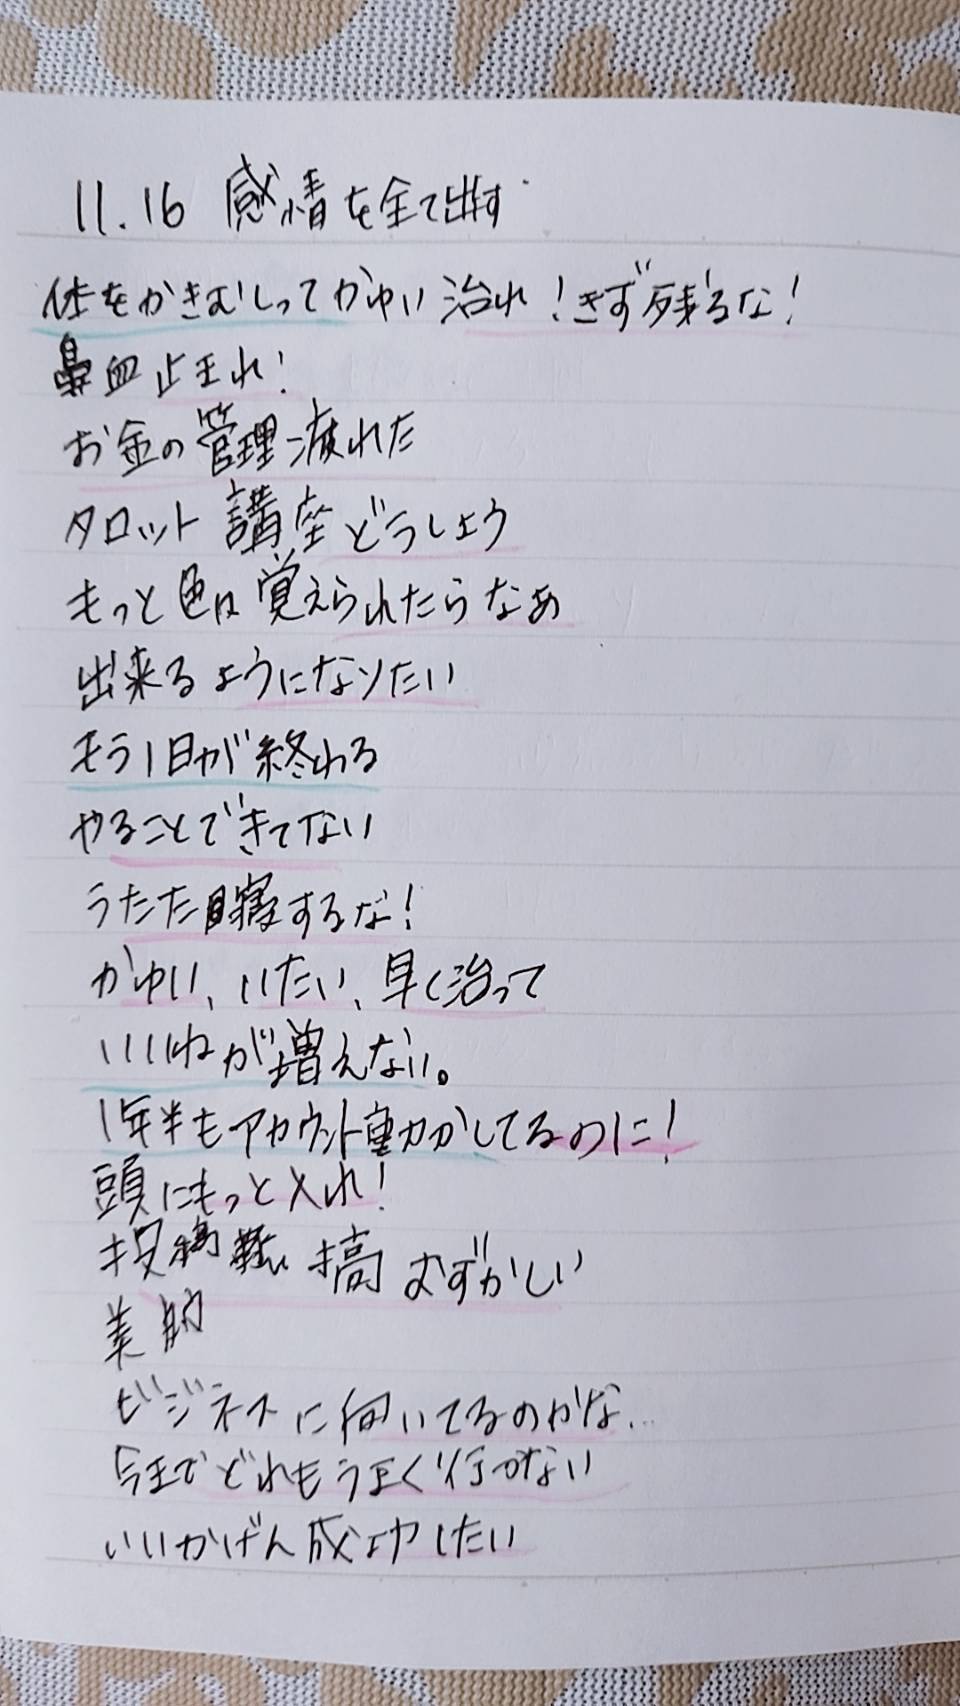 11.16 感情を全て出す
体をかきむしってかゆい治れ!きず残るな!
鼻血止まれ!
お金の管理疲れた
タロット講座どうしよう
もっと色は覚えられたらなあ
出来るようになりたい
もう1日が終わる
やることできてない
うたた寝するな!
かゆい、いたい、早く治って
いいねが増えない。
1年半もアカウント動かしてるのに!
頭にもっと入れ!
投稿 むずかしい
美
ビジネスに向いてるのかな…
今までどれもうまく行かない
いいかげん成功したい